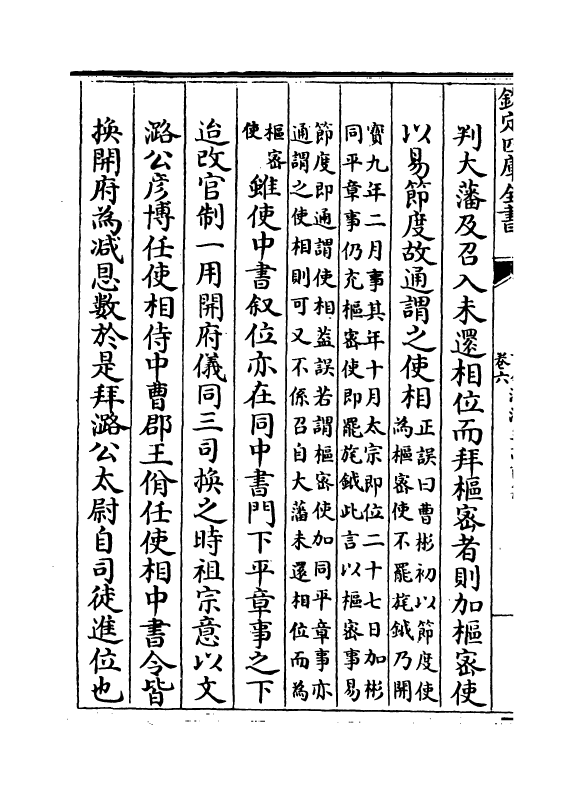 欽定四庫全書
卷六
判大藩及召入未還相位而拜樞宻者則加樞宻使
以易節度故通謂之使相正誤曰曹彬初以節度使
為樞宻使不罷旄鉞乃開
寳九年二月事其年十月太宗即位二十七日加彬
同平章事仍充樞宻使即罷旄鉞此言以樞宻事易
節度即通謂使相葢誤若謂樞宻使加同平章事亦
通謂之使相則可又不係召自大藩未還相位而為
樞宻
使
雖使中書叙位亦在同中書門下平章事之下
迨改官制一用開府儀同三司換之時祖宗意以文
潞公彦博任使相侍中曹郡王佾任使相中書令皆
換開府為减恩數於是拜潞公太尉自司徒進位也